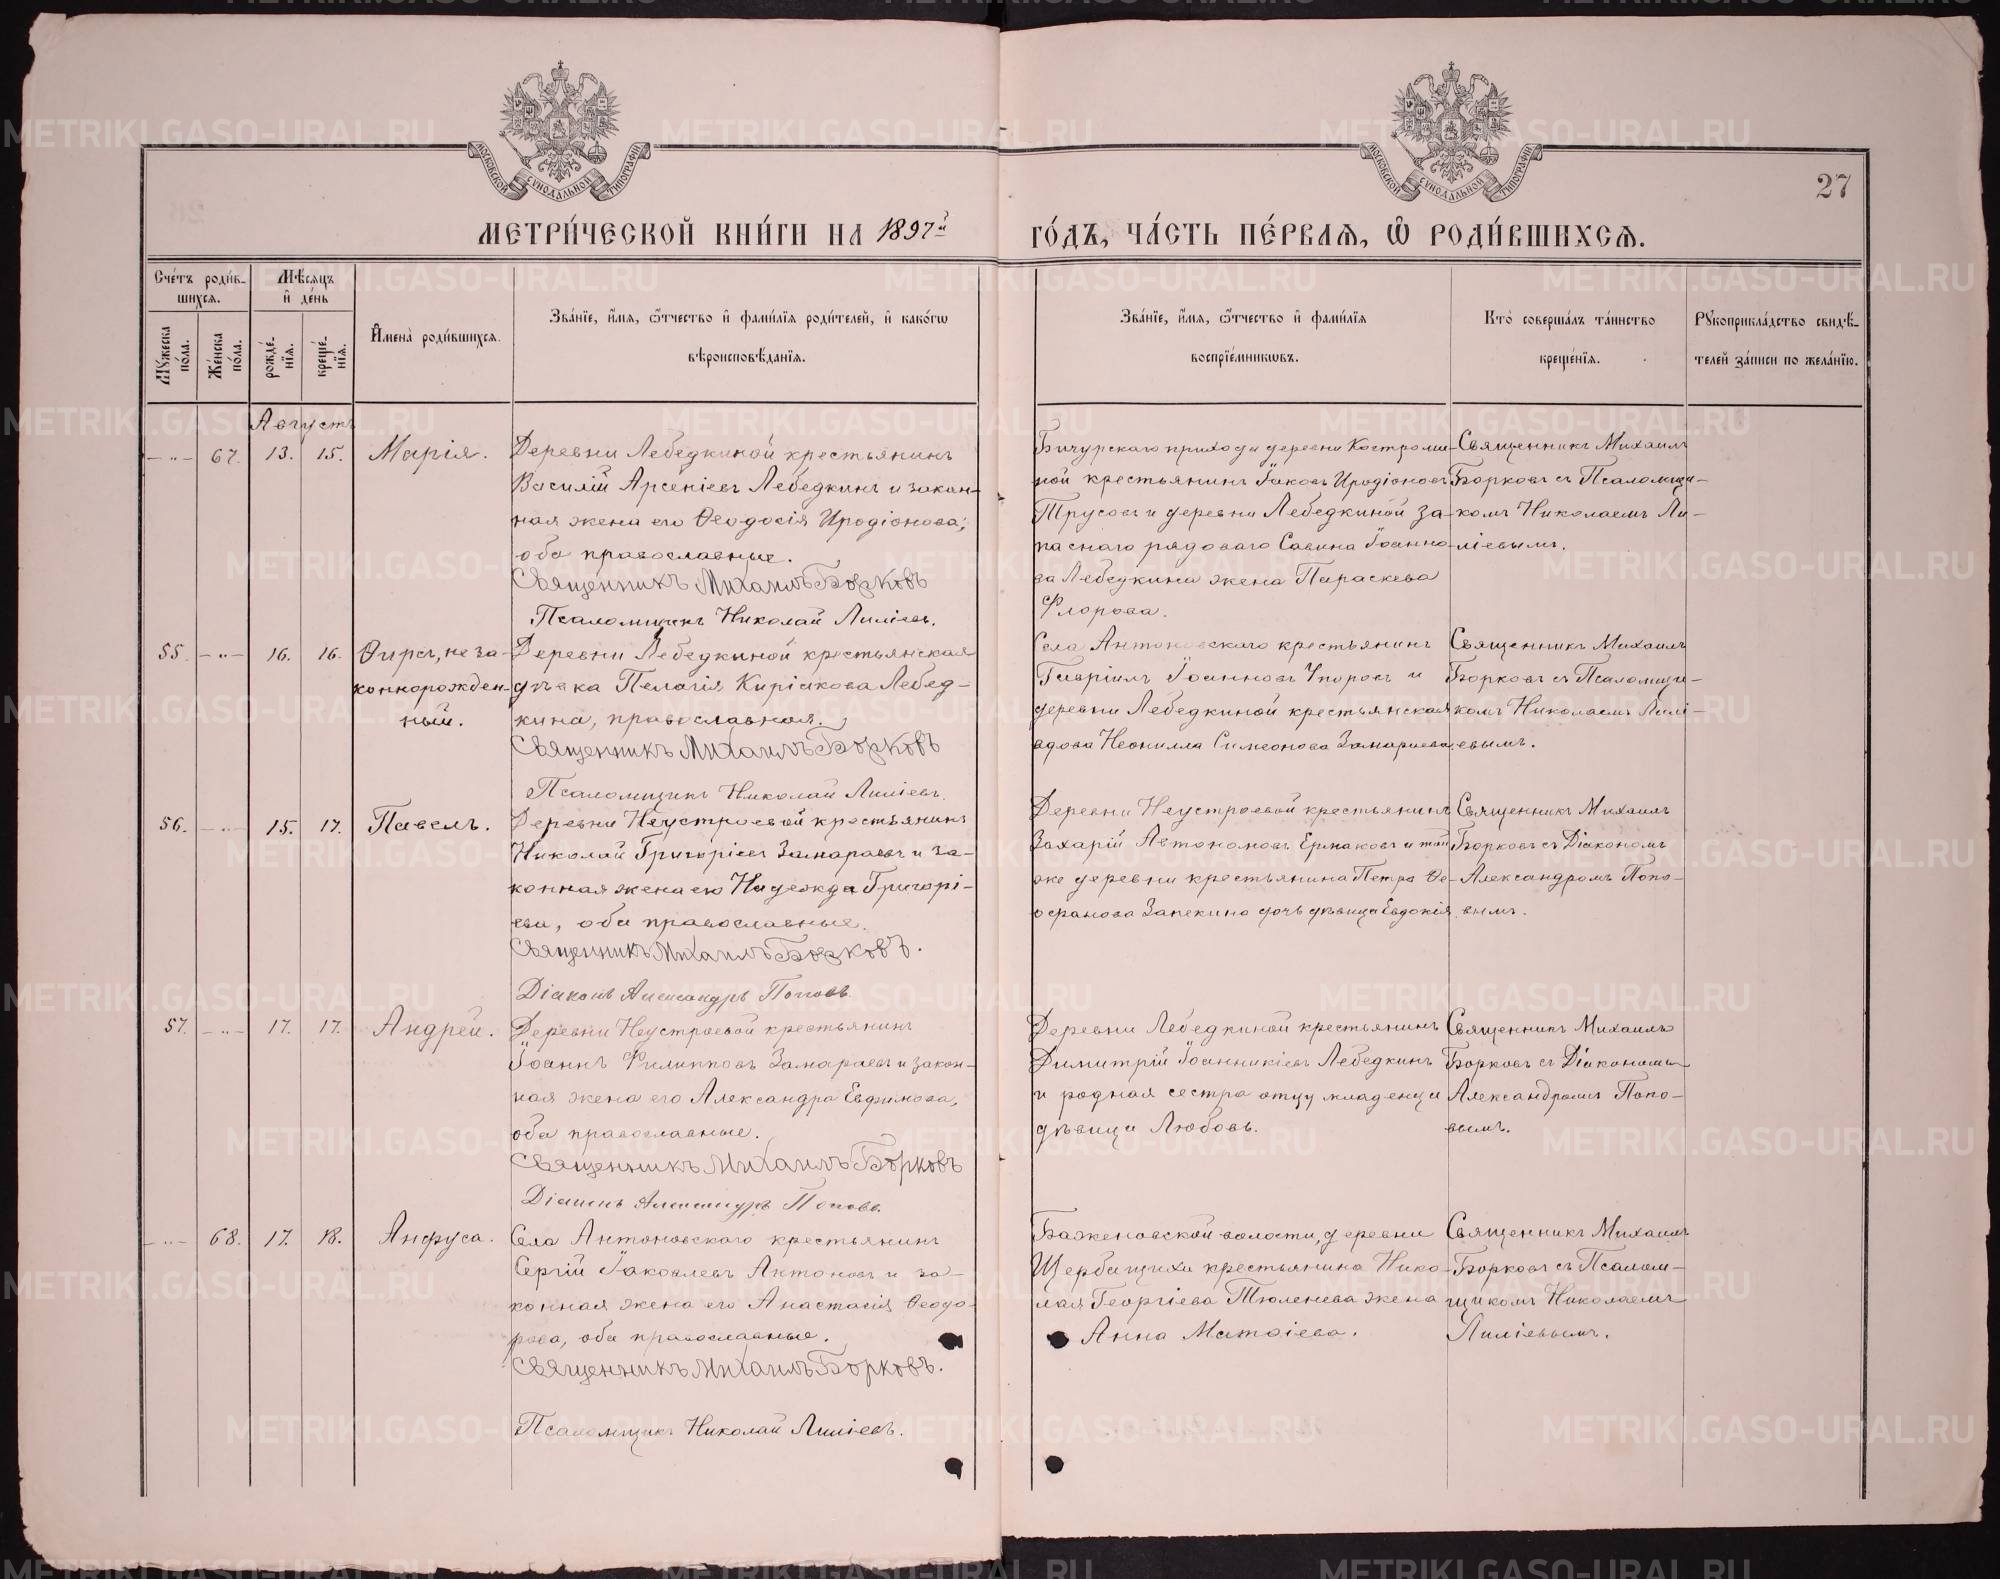 27
МЕТРИ́ЧЕСКОЙ КНИ́ГИ НА 1897й ГО́ДЪ, ЧА́СТЬ ПЕ́РВАЯ, Ѡ РОДИ́ВШИХСЯ.
МОСКОВСКОЙ СѴНОДАЛЬНОЙ ТИПОГРАФІИ
МОСКОВСКОЙ СѴНОДАЛЬНОЙ ТИПОГРАФІИ
Сче́тъ роди́вшихся.
Мꙋжеска по́ла.
Же́нска по́ла.
Мѣ́сяцъ и҆ де́нь
рожде́нїя.
креще́нїя.
И҆мена̀ роди́вшихся.
Зва́нїе, и҆́мя, ѻ҆́тчество и҆ фами́лїя роди́телей, и҆ како́гѡ
вѣроисповѣ́данїя.
Зва́нїе, и҆́мя, ѻ҆́тчество и҆ фами́лїя
воспрїе́мникѡвъ.
Кто̀ соверша́лъ та́инство
креще́нїя.
Рꙋкоприкла́дство свидѣ́-
телей за́писи по жела́нїю.
Августъ
— „ — 67. 13. 15. Марія.
Деревни Лебедкиной крестьянинъ
Василій Арсеніевъ Лебедкинъ и закон-
ная жена его Ѳеодосія Иродіонова;
оба православные.
Священникъ Михаилъ Борковъ
Псаломщикъ Николай Лиліевъ.
Бичурскаго прихода деревни Костроми-
ной крестьянинъ Іаковъ Иродіоновъ
Трусовъ и деревни Лебедкиной за-
паснаго рядоваго Савина Іоанно-
ва Лебедкина жена Параскева
Флорова.
Священникъ Михаилъ
Борковъ съ Псаломщи-
комъ Николаемъ Ли-
ліевымъ.
55. — „ — 16. 16. Ѳирсъ, не за-
коннорожден-
ный.
Деревни Лебедкиной крестьянская
дѣвка Пелагія Киріакова Лебед-
кина, православная.
Священникъ Михаилъ Борковъ
Псаломщикъ Николай Лиліевъ.
Села Антоновскаго крестьянинъ
Гавріилъ Іоанновъ Упоровъ и
деревни Лебедкиной крестьянская
вдова Неонилла Симеонова Замараева
Священникъ Михаилъ
Борковъ съ Псаломщи-
комъ Николаемъ Лилі-
евымъ.
56. — „ — 15. 17. Павелъ.
Деревни Неустроевой крестьянинъ
Николай Григорьевъ Замараевъ и за-
конная жена его Надежда Григорі-
ева, оба православные.
Священникъ Михаилъ Борковъ.
Діаконъ Александръ Поповъ
Деревни Неустроевой крестьянинъ
Захарій Автономовъ Ермаковъ и той
же деревни крестьянина Петра Ѳе-
офанова Запекина дочь дѣвица Евдокія
Священникъ Михаилъ
Борковъ съ Діакономъ
Александромъ Попо-
вымъ.
57. — „ — 17. 17. Андрей.
Деревни Неустроевой крестьянинъ
Іоаннъ Филипповъ Замараевъ и закон-
ная жена его Александра Евфимова,
оба православные.
Священникъ Михаилъ Борковъ
Діаконъ Александръ Поповъ
Деревни Лебедкиной крестьянинъ
Димитрій Іоанникіевъ Лебедкинъ
и родная сестра отцу младенца
дѣвица Любовь.
Священникъ Михаилъ
Борковъ съ Діакономъ
Александромъ Попо-
вымъ.
— „ — 68. 17. 18. Анфуса.
Села Антоновскаго крестьянинъ
Сергій Іаковлевъ Антоновъ и за-
конная жена его Анастасія Ѳеодо-
рова, оба православные.
Священникъ Михаилъ Борковъ.
Псаломщикъ Николай Лиліевъ.
Баженовской волости, деревни
Щербащиха крестьянина Нико-
лая Георгіева Тюленева жена
Анна Матѳіева.
Священникъ Михаилъ
Борковъ съ Псалом-
щикомъ Николаемъ
Лиліевымъ.
METRIKI.GASO-URAL.RU